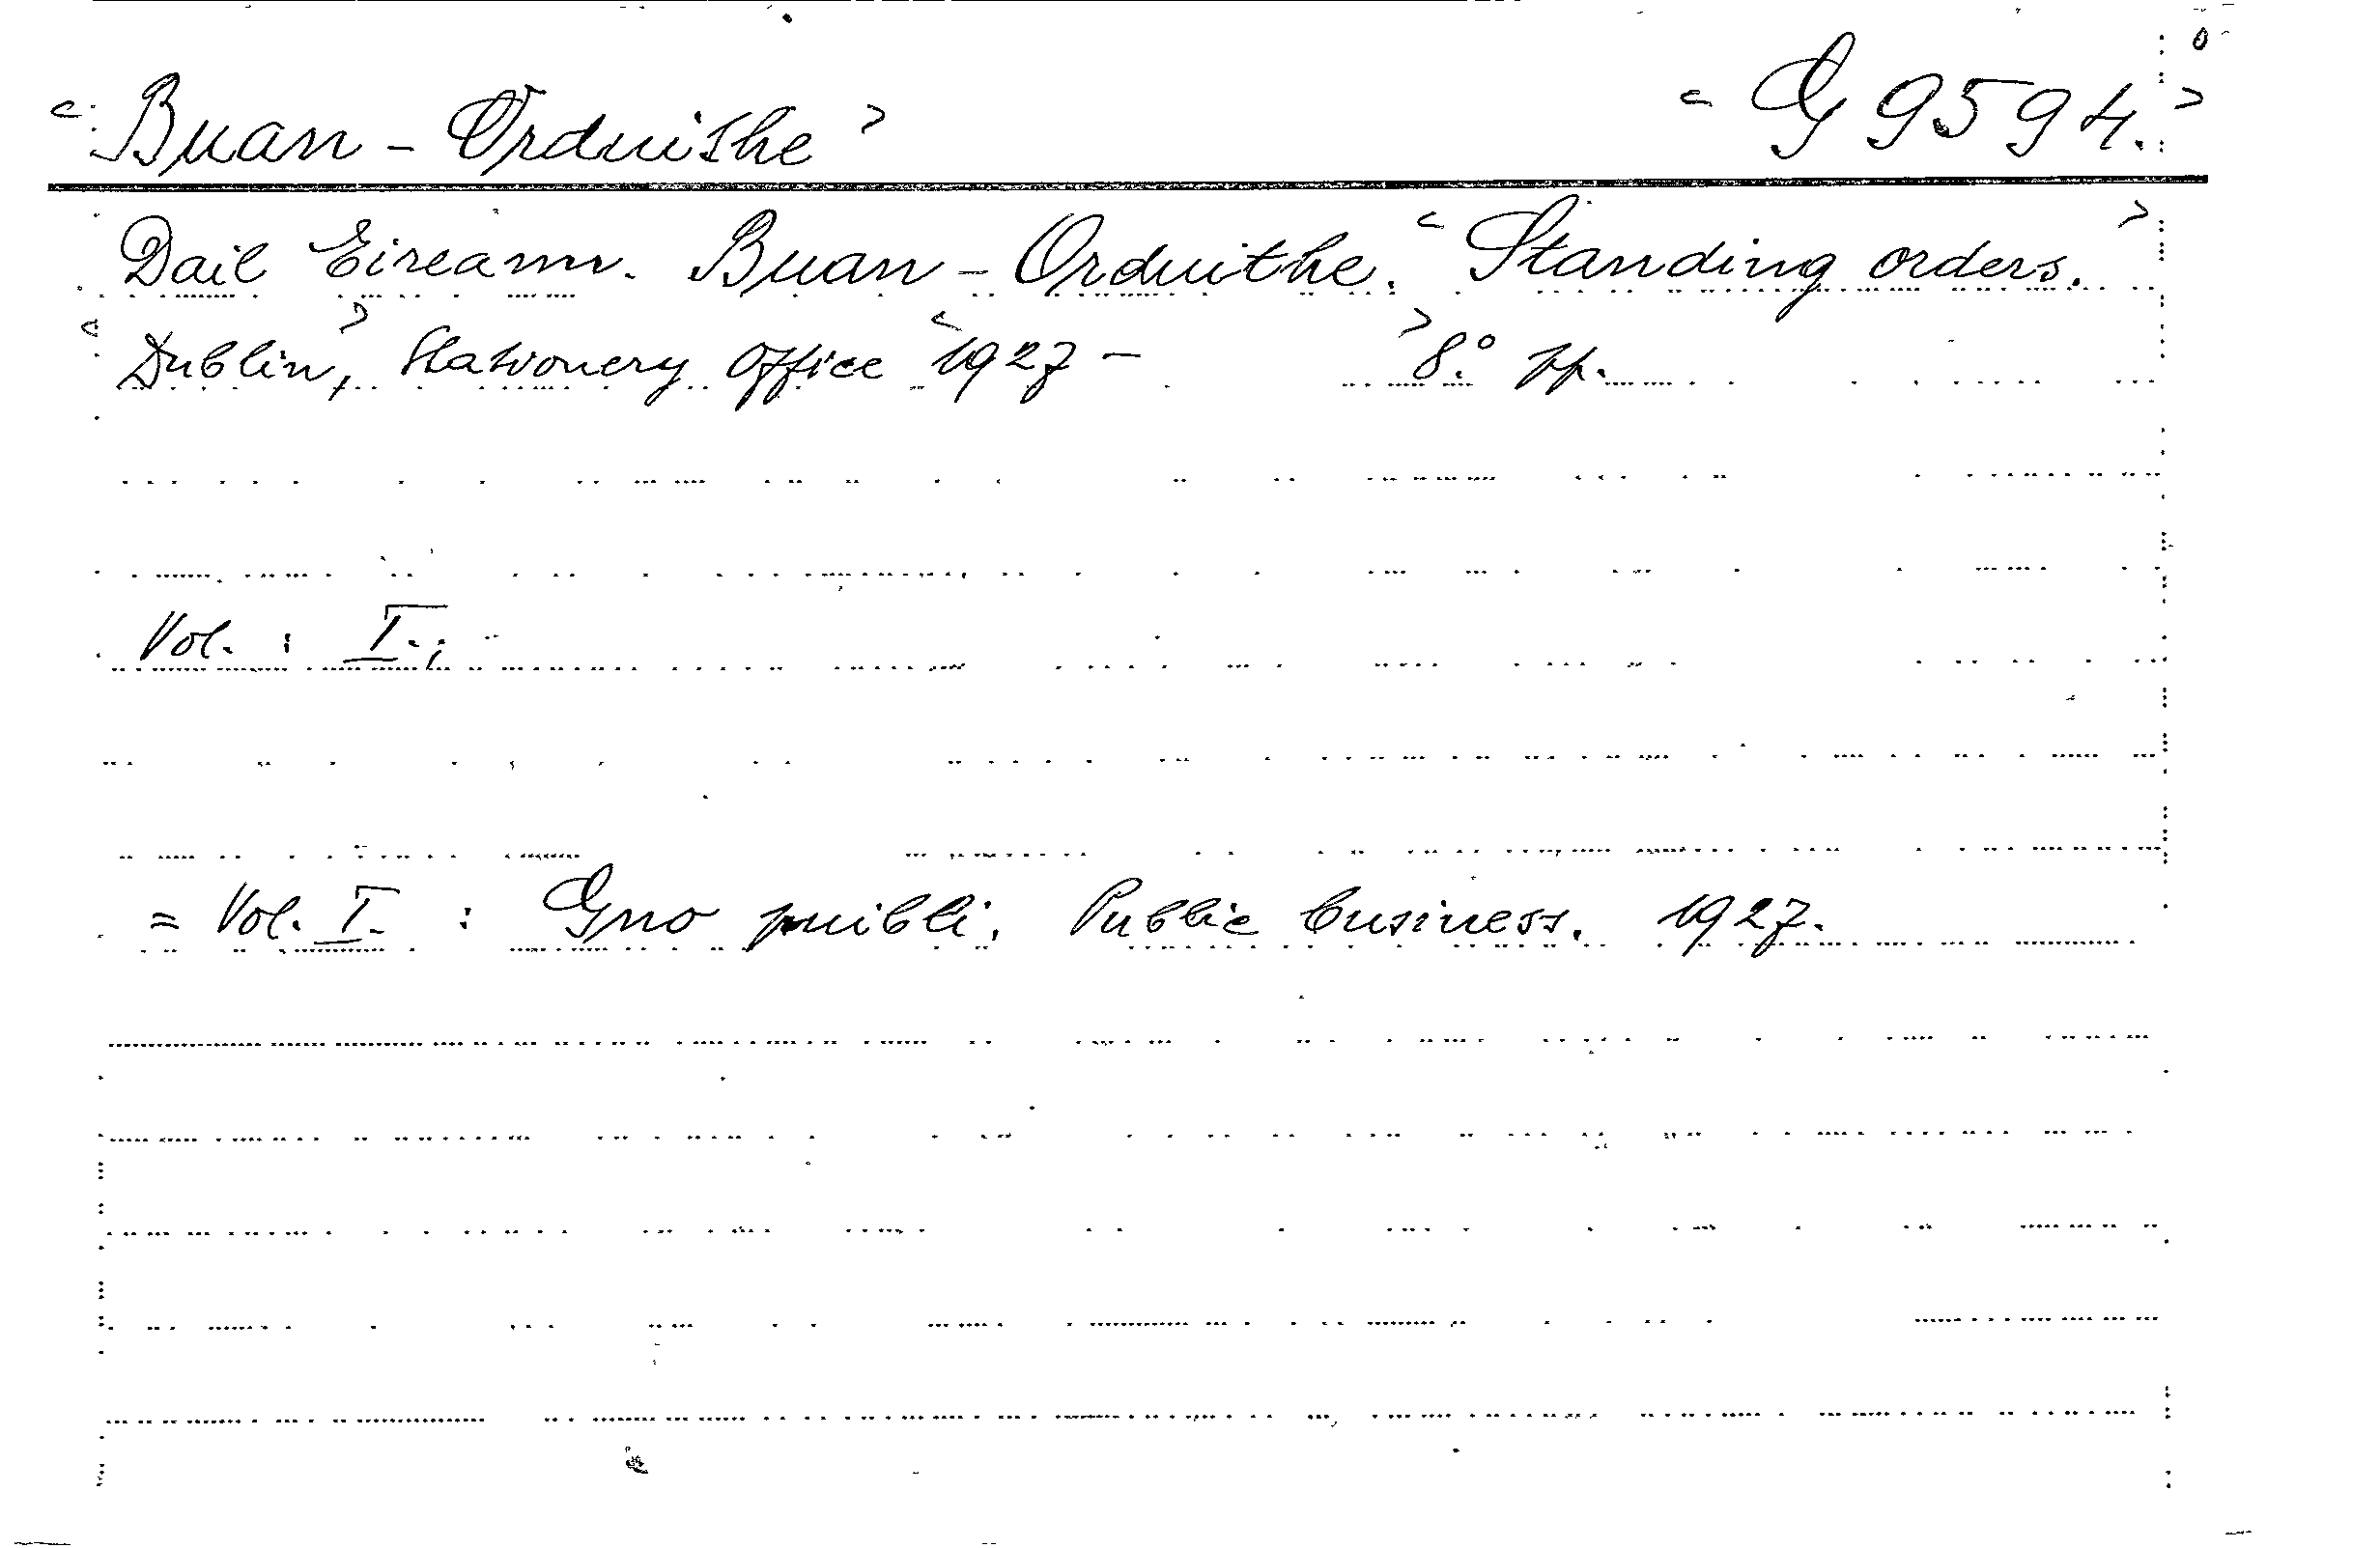 <Buan-Orduithe> <G 9594.>
Dail Eireann. Buan-Orduithe. <Standing orders.>
<Dublin,> Stationery Office <1927- > 8.° pp.
Vol. : I.;
= Vol. I. : Gno puibli. Public business. 1927.